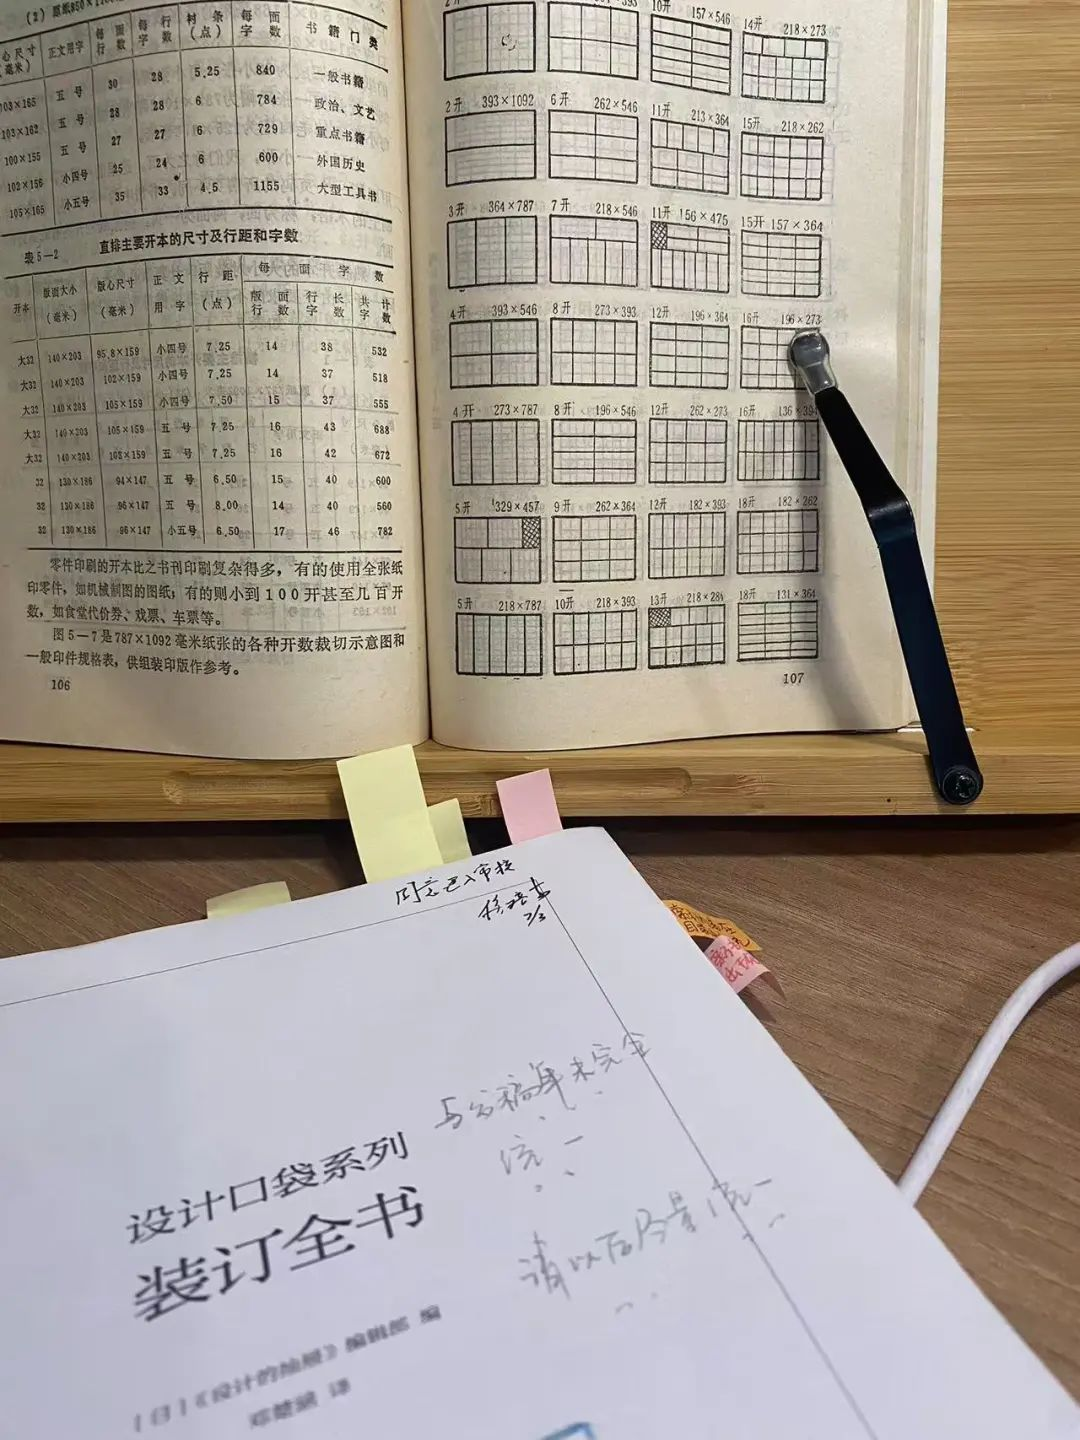 (2) 原纸850×
版心尺寸(毫米) 正文用字 每面行数 每行字数 衬条(点) 每面字数 书籍门类
103×165 五号 30 28 5.25 840 一般书籍
103×162 五号 28 28 6 784 政治、文艺
100×155 五号 27 27 6 729 重点书籍
102×156 小四号 25 24 6 600 外国历史
105×165 小五号 35 33 4.5 1155 大型工具书
表5—2 直排主要开本的尺寸及行距和字数
开本 版面大小(毫米) 版心尺寸(毫米) 正文用字 行距(点) 每面字数
版面行数 行长字数 共计字数
大32 140×203 95.8×159 小四号 7.25 14 38 532
大32 140×203 102×159 小四号 7.25 14 37 518
大32 140×203 105×159 小四号 7.50 15 37 555
大32 140×203 105×159 五号 7.25 16 43 688
大32 140×203 102×159 五号 7.25 16 42 672
32 130×186 94×147 五号 6.50 15 40 600
32 130×186 96×147 五号 8.00 14 40 560
32 130×186 96×147 小五号 6.50 17 46 782
零件印刷的开本比之书刊印刷复杂得多，有的使用全张纸
印零件，如机械制图的图纸；有的则小到100开甚至几百开
数，如食堂代价券、戏票、车票等。
图5—7是787×1092毫米纸张的各种开数裁切示意图和
一般印件规格表，供组装印版作参考。
106
2开 10开 157×546 14开 218×273
2开 393×1092 6开 262×546 11开 213×364 15开 218×262
3开 364×787 7开 218×546 11开 156×475 15开 157×364
4开 393×546 8开 273×393 12开 196×364 16开 196×273
4开 273×787 8开 196×546 12开 262×273 16开 136×394
5开 329×457 9开 262×364 12开 182×393 18开 182×262
5开 218×787 10开 218×393 13开 218×284 18开 131×364
107
同意已入审校
2/3
与分稿未完全
统一
请以后尽量统一
设计口袋系列
装订全书
[日]《设计的抽屉》编辑部 编
邓楚涵 译